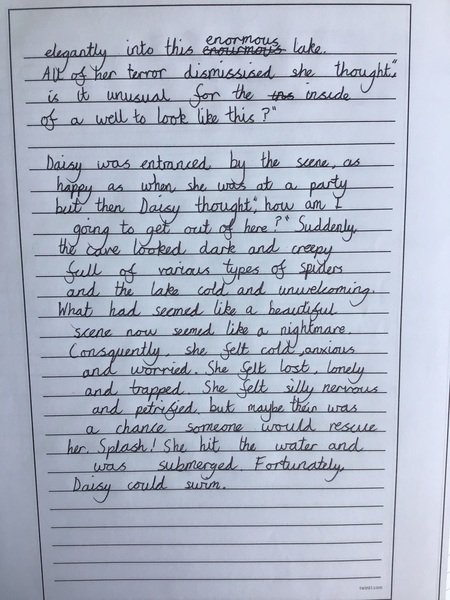 enormous
elegantly into this enourmous lake.
All of her terror dismissised she thought,"
is it unusual for the ins inside
of a well to look like this?"
Daisy was entranced by the scene, as
happy as when she was at a party
but then Daisy thought", how am I
going to get out of here?" Suddenly,
the cave looked dark and creepy
full of various types of spiders
and the lake cold and unwelcoming.
What had seemed like a beautiful
scene now seemed like a nightmare.
Consquently, she felt cold, anxious
and worried. She felt lost, lonely
and trapped. She felt silly nervous
and petrified, but maybe their was
a chance someone would rescue
her. Splash! She hit the water and
was submerged. Fortunately,
Daisy could swim.
twinkl.com